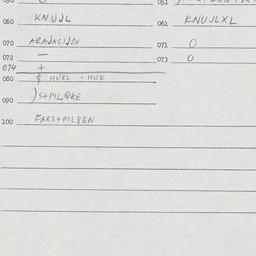 060 KNUJL 061 KNUJLXL
070 ARAJNCIJIN 071 0
072 — 073 0
074 +
080 $ HURL - HUK
090 )S+PILQKE
100 FARS+PILQEN